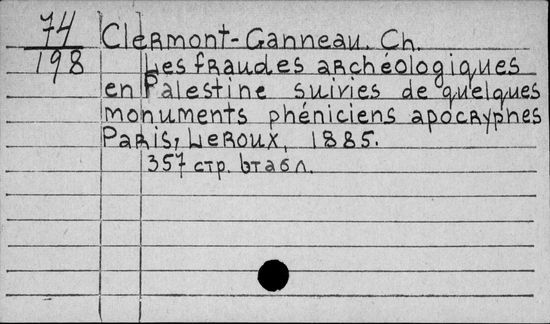 74
198
Clermont-Ganneau. Ch.
Les fraudes archéologiques
en Palestine suivies de quelques
monuments phéniciens apocryphes
Paris, Leroux, 1885.
357 стр. 6табл.